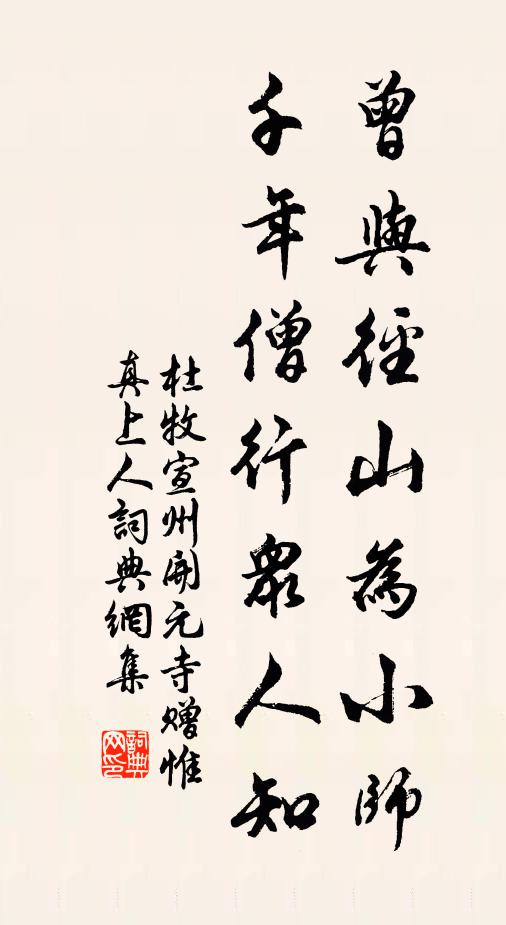 曾與徑山為小師
千年僧行眾人知
杜牧宣州開元寺贈惟
真上人詞典網集
詞典網印